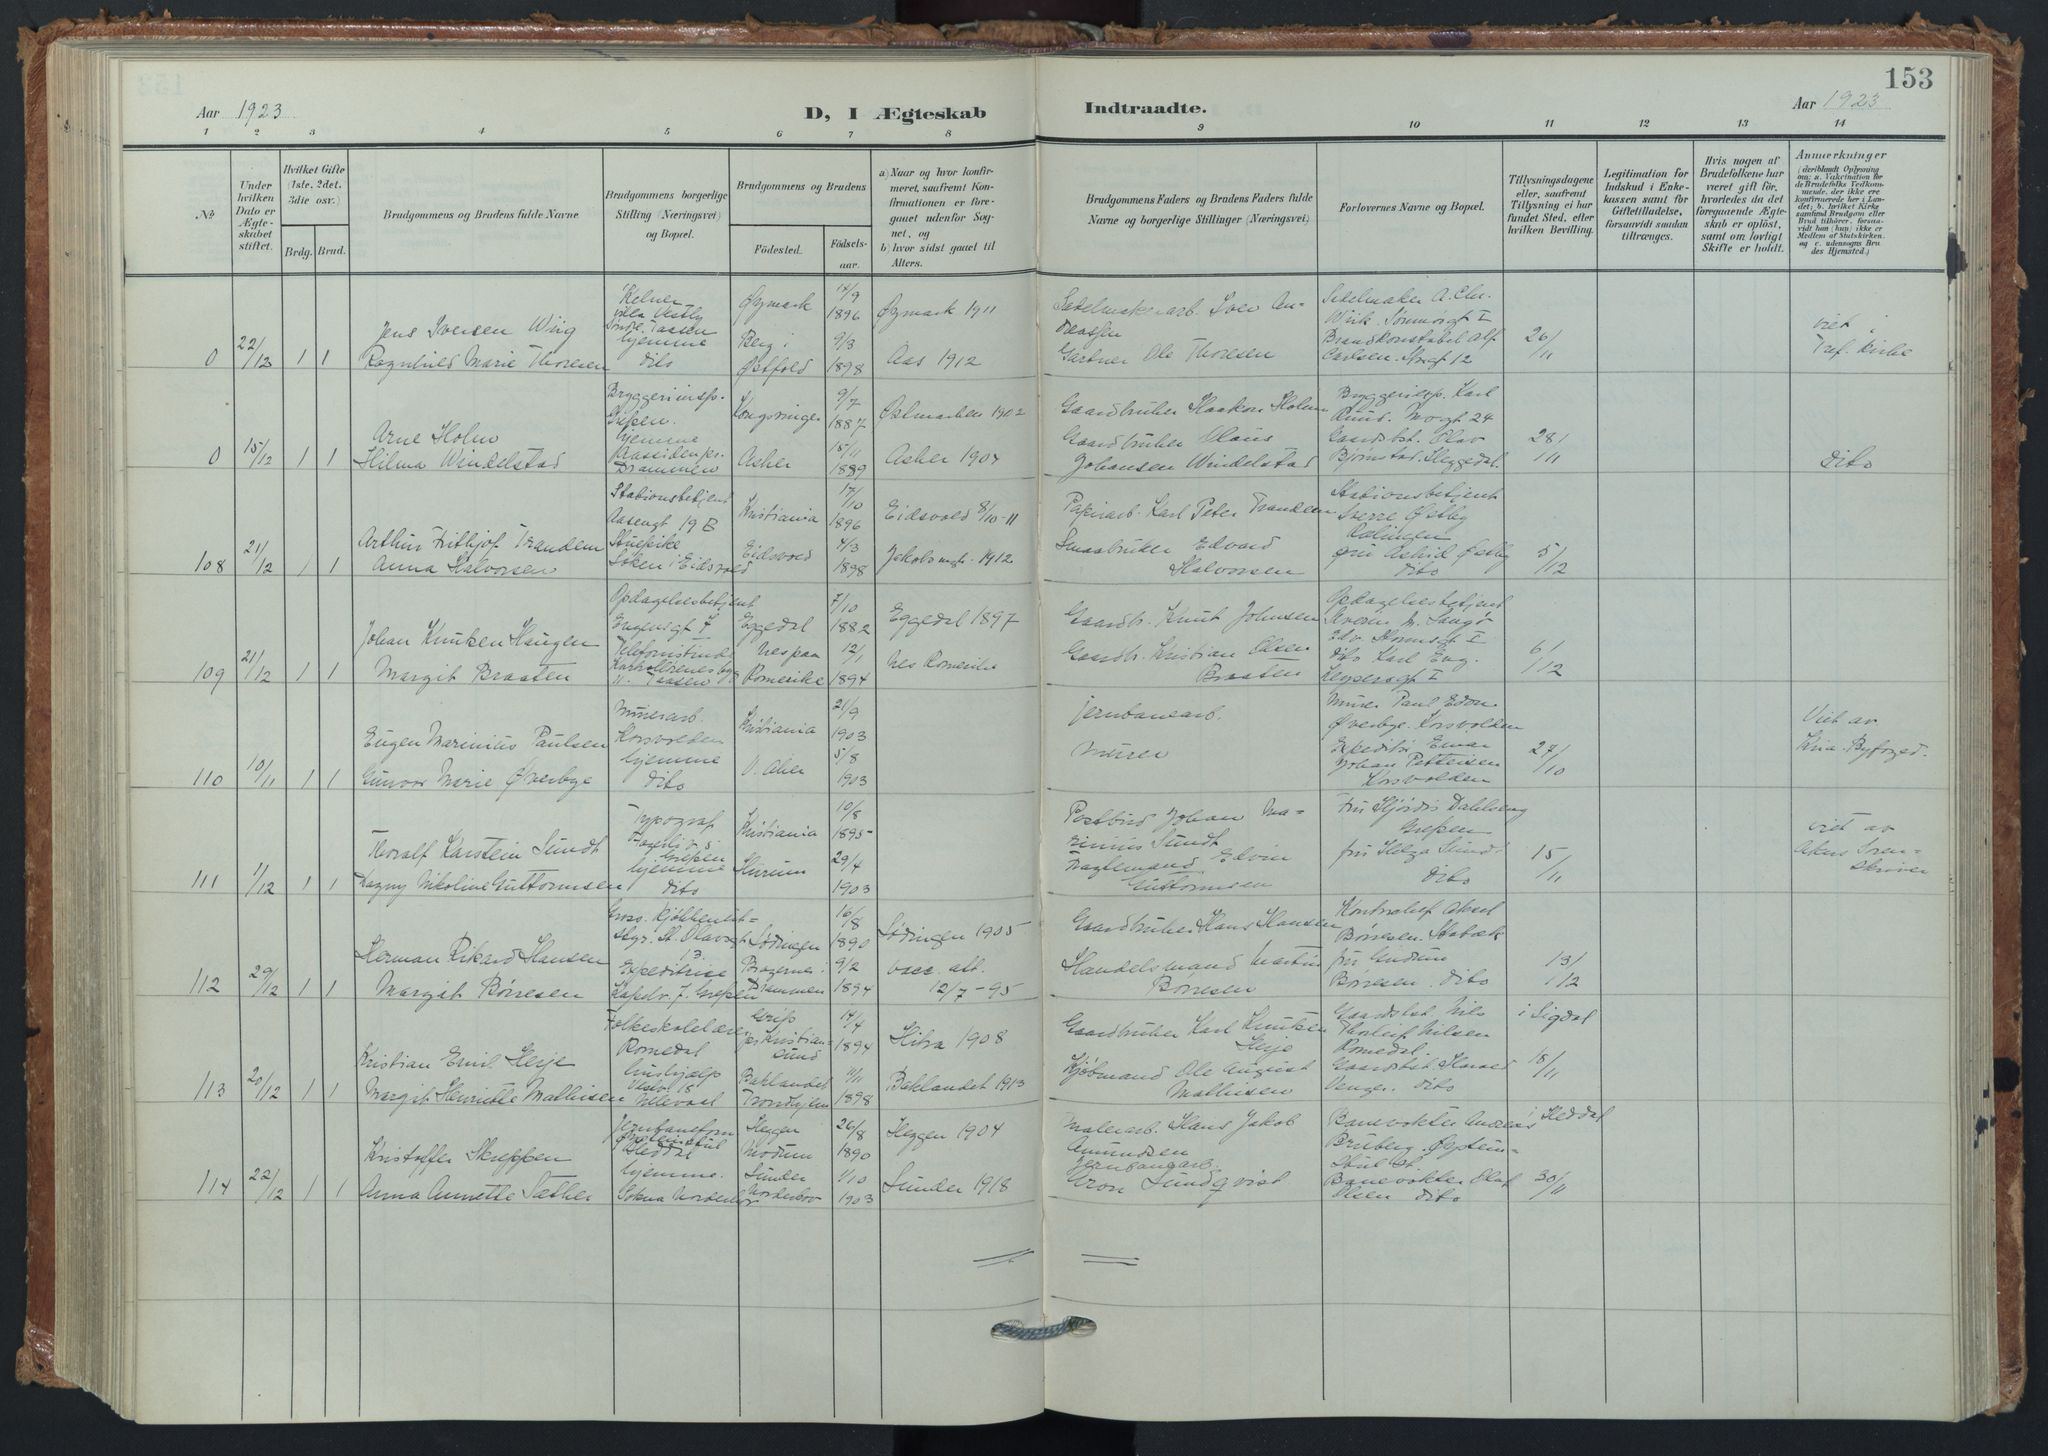 153
Aar 1923
D, I Ægteskab
Indtraadte.
Aar 1923
1 2 3 4 5 6 7 8 9 10 11 12 13 14
№
Under hvilken Dato er Ægteskabet stiftet.
Hvilket Gifte (1ste, 2det, 3die osv.)
Brdg. Brud.
Brudgommens og Brudens fulde Navne
Brudgommens borgerlige Stilling (Næringsvei) og Bopæl.
Brudgommens og Brudens
Födested.
Födsels-aar.
a) Naar og hvor konfirmeret, saafremt Konfirmationen er foregaaet udenfor Sognet, og
b) hvor sidst gaaet til Alters.
Brudgommens Faders og Brudens Faders fulde Navne og borgerlige Stillinger (Næringsvei)
Forlovernes Navne og Bopæl.
Tillysningsdagene eller, saafremt Tillysning ei har fundet Sted, efter hvilken Bevilling.
Legitimation for Indskud i Enkekassen samt for Giftetilladelse, forsaavidt saadan tiltrænges.
Hvis nogen af Brudefolkene har været gift før, hvorledes da det foregaaende Ægteskab er opløst, samt om lovligt Skifte er holdt.
Anmerkninger
(deriblandt Oplysning om: a. Vakcination for de Brudefolks Vedkommende, der ikke ere konfirmerede her i Landet; b. hvilket Kirkesamfund Brudgom eller Brud tilhører, forsaavidt han (hun) ikke er Medlem af Statskirken, og c. udensogns Brudes Hjemsted.)
0 22/12 1 1
Jens Iversen Wiig
Ragnhild Marie Thoresen
Kelner
Taasen
hjemme
dito
Øymark 14/9 1896 Øymark 1911
Berg i Østfold 9/3 1898 Aas 1912
Sadelmakerarb. Iver Andreassen
Gartner Ole Thoresen
Sadelmaker A. Chr. Wiik
Brandkonstabel Alf Carlsen
26/11
viet i Tref. kirke
0 15/12 1 1
Arne Holm
Hilma Windelstad
Bryggeriinsp.
Grefsen.
hjemme
Drammen
Kongsvinger 9/7 1887 Østmarken 1902
Asker 15/11 1889 Asker 1904
Gaardbruker Haakon Holm
Gaardbruker Olaus
Johansen Windelstad
Bryggeridisp. Karl
Gaardbst. Olav
Bjørnstad, Heggedal.
28/11
dito
108 21/12 1 1
Arthur Frithjof Trandem
Anna Halvorsen
Stationsbetjent
Aasengt 19 B
Stuepike
Eidsvold
Kristiania 17/10 1896 Eidsvold 8/10-11
Eidsvold 4/3 1898 Jakobsmgt. 1912
Papirarb. Karl Peter Trandem
Smaabruker Edvard
Halvorsen
Stationsbetjent
Sverre Østby
fru Astrid Østby
dito
5/12
109 21/12 1 1
Johan Knutsen Haugen
Margit Braaten
Opdagelsesbetjent
Telefonistinde
Taasen
Eggedal 7/10 1882 Eggedal 1897
Nes paa Romerike 12/1 1894 Nes Romerike
Gaardb. Knut Johnsen
Gaardb. Kristian Olsen
Braaten
Opdagelsesbetjent
dito Karl Eng.
6/12
110 10/11 1 1
Eugen Marinius Paulsen
Gunvor Marie Øverbye
Murerarb.
Korsvolden
hjemme
dito
Kristiania 21/9 1903
V. Aker 5/8 1903
jernbanearb.
murer
Murer Paul Edon
Øverbye. Korsvolden
Johan Pettersen
Korsvolden
27/10
Viet av
Kria. Byfoged.
111 1/12 1 1
Thoralf Karstein Sundt
Dagny Nikoline Guttormsen
Typograf
Grefsen
hjemme
dito
Kristiania 10/8 1895
Hurum 29/4 1903
Postbud Johan Marinius Sundt
Edvin
Guttormsen
Fru Hjørdis Dahlseng
Grefsen
fru Helga Sundt
dito
15/11
viet av
Akers Soren-
skriver
112 29/12 1 1
Herman Rikard Hansen
Margit Børresen
St. Olavsgt 13
Expeditrise
Grefsen
Lødingen 16/8 1890 Lødingen 1905
Bragernes i Drammen 9/2 1894
vacc. att.
12/7-95
Gaardbruker Hans Hansen
Handelsmand Martin
Børresen
Kontorchef Aksel
Børresen. Stabæk
fru Gudrun
Børresen. dito
13/12
113 20/12 1 1
Kristian Emil Heje
Margit Henriette Mathisen
Folkeskolelærer
Romedal
hushjælp
Ullevaal
Grip pr Kristiansund 14/4 1894 Hitra 1908
Baklandet Trondhjem 11/11 1898 Baklandet 1913
Gaardbruker Karl Knutsen
Heje
Kjøbmand Ole August
Mathisen
Gaardbst Nils
Thorleif Nilsen
Romedal
Gaardbst Harald
dito
i Sigdal
18/11
114 22/12 1 1
Kristoffer Skreppen
Anna Annette Sæther
Jernbaneform
Heddal
hjemme.
Sokna Norderhov
Heggen Modum 26/8 1890 Heggen 1904
Lunder Norderhov 1/10 1903 Lunder 1918
Malerarb. Hans Jakob
Amundsen
Jernbanearb.
Lundqvist.
Banevokter Andreas
Bruberg.
Banevokter Olaf
Olsen dito
i Heddal
30/11